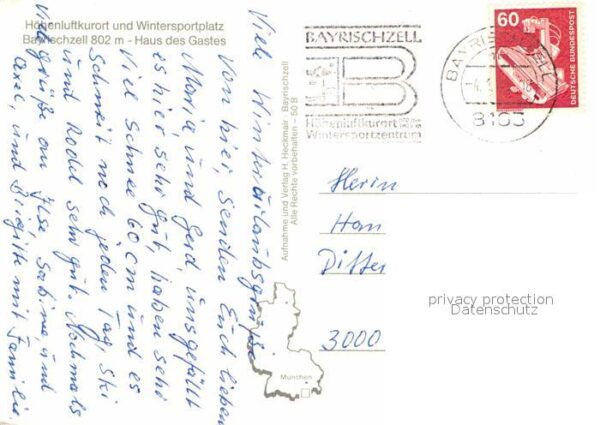 Höhenluftkurort und Wintersportplatz
Bayrischzell 802 m - Haus des Gastes
Viele Winterurlaubsgrüße
von hier, senden Euch lieben
Maria und Gerd, uns gefällt
es hier sehr gut, haben sehr
viel Schnee 60 cm und es
Schneit noch jeden Tag, Ski
und Rodel sehr gut. Nochmals
viele Grüße an Ilse, Sabine, und
Axel, und Birgitte mit Familie.
Aufnahme und Verlag H. Heckmair Bayrischzell
Alle Rechte vorbehalten - 50 B
München
BAYRISCHZELL
B
Höhenluftkurort
Wintersportzentrum
BAYRISCHZELL
8163
60
DEUTSCHE BUNDESPOST
Herrn
Han
Ditter
3000
privacy protection
Datenschutz